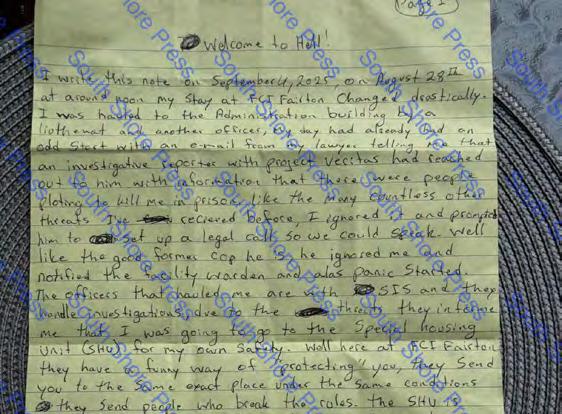 Page 1
Welcome to Hell!
I write this note on September 4, 2025, on August 28th
at around noon my Stay at FCI Fairton Changed drastically.
I was hauled to the Administration building by a
liothenat and another officer, my day had already had an
odd Start with an e-mail from my lawyer telling me that
an investigative reporter with project veritas had reached
out to him with information that there were people
ploting to kill me in prison, like the many countless other
threats I've recieved before, I ignored it and prompted
him to set up a legal call so we could speak. Well
like the good former cop he is he ignored me and
notified the facility warden and alas panic Started.
The officers that hauled me are with SIS and they
handle investigations, due to the threat they informe
me that I was going to go to the Special housing
Unit (SHU) for my own Safety. Well here at FCI Fairton
they have a funny way of "protecting" you, they Send
you to the Same exact place under the Same conditions
they send people who break the rules. the SHU is
South Shore Press